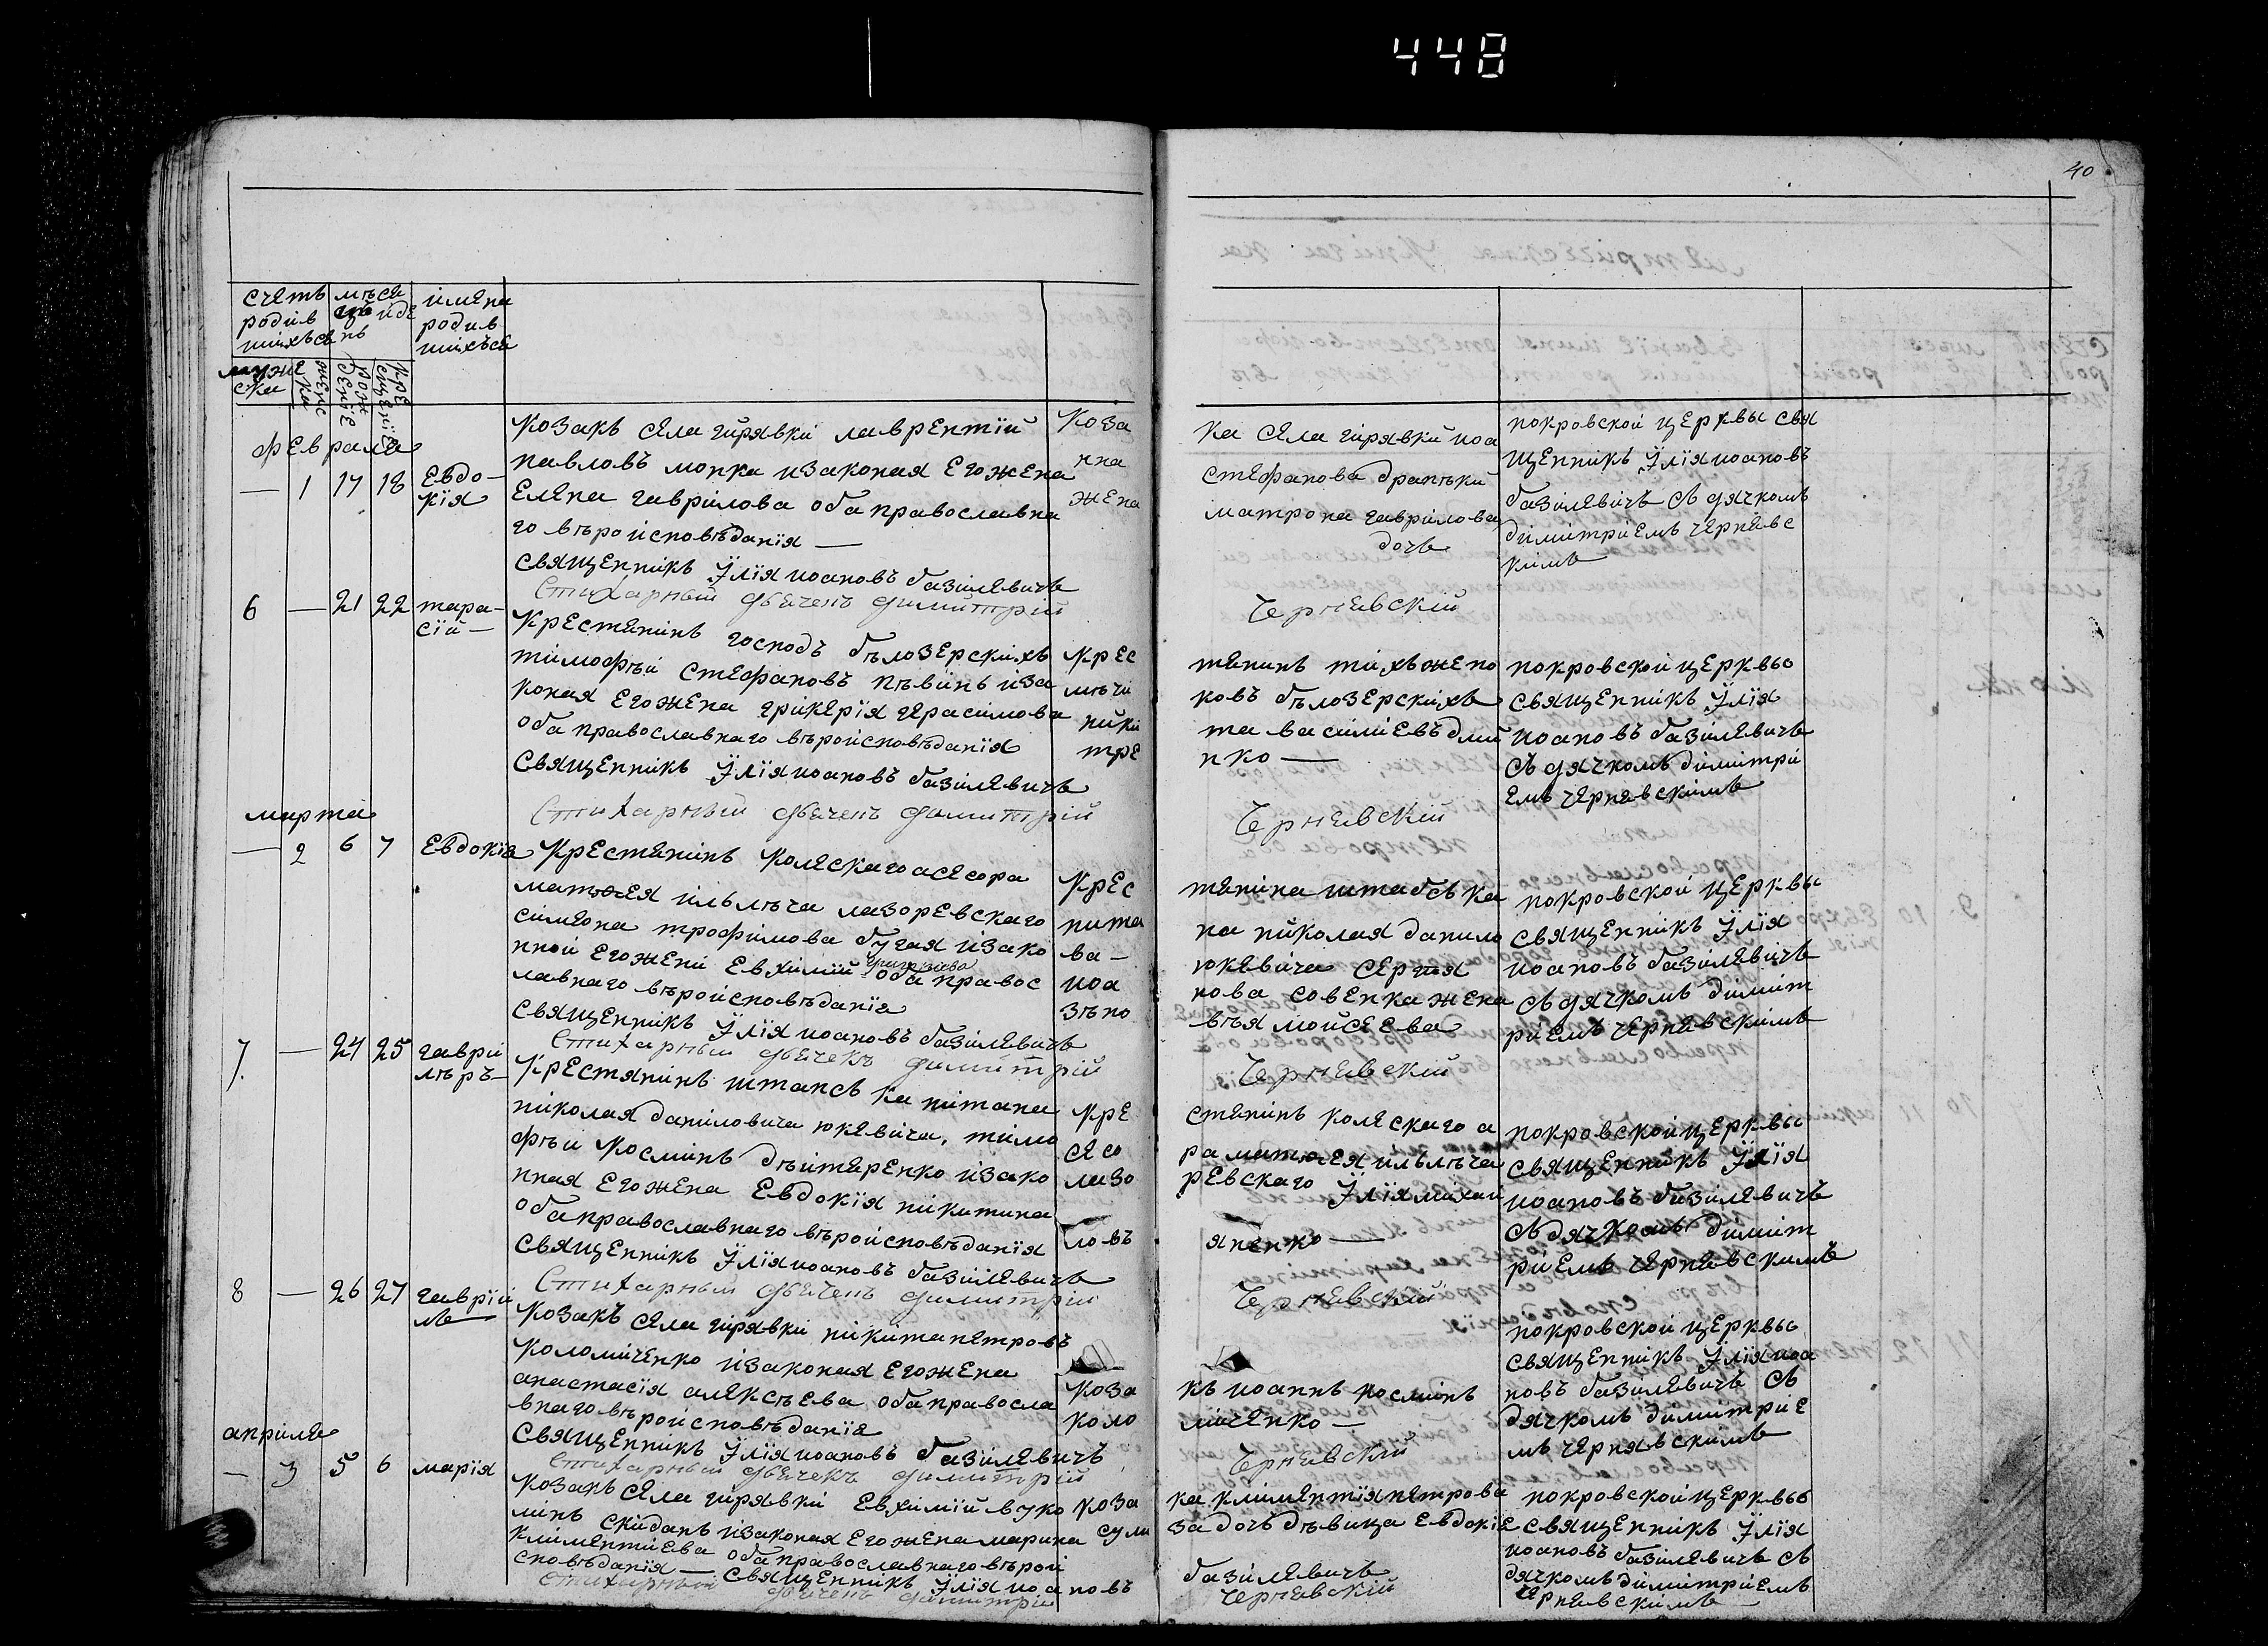 448
40
счетъ
родив
шихъся
мѣся
цъ и де
нь
имена
родив
шихъся
муже
ска
женс
ка
рож
деніе
кре
щеніе
февраля
— 1 17 18 Евдо-
кія
козакъ села гирявки лаврентій
павловъ мопка изаконая Его жена
Елена гаврилова оба православна
го вѣроисповѣданія —
священникъ Илія иоановъ базилевичъ
Стихарный дьячекъ димитрій
Коза
нна
жена
ка села гирявки иоа
стефанова драпѣки
матрона гаврилова
дочь
Черневскій
покровской церквы свя
щенникъ Илія иоановъ
базилевичъ съ дячкомъ
димитріемъ чернявс
кимъ
6 — 21 22 тара-
сій —
Крестянинъ господъ бѣлозерскихъ
тимофѣй стефановъ пѣвинь иза
коная Его жена грикерія герасимова
оба православнаго вѣроисповѣданія
Священникъ Илія иоановъ базилевичъ
Стихарный дьячекъ димитрій
Крес
мѣчи
ники
тре
тянинъ тихъ жено
ковъ бѣлозерскихъ
та василіевъ дми
нко —
Черневскій
покровской церквы
священникъ Илія
иоановъ базилевичъ
съ дячкомъ димитри
Емъ чернявскимъ
марта
— 2 6 7 Евдокія
Крестянинъ колескаго асесора
матфея ильлѣча лазоревскаго
симеона трофимова бугая изако
нной Его жени Евхимій григориева оба правос
лавнаго вѣроисповѣданія
священникъ Илія иоановъ базилевичъ
Стихарный дьячекъ димитрій
Крес
пита
ва —
иоа
зѣно
тянина штабсъ ка
на николая данило
юкевича сергея
нова совенка жена
вѣя мойсеева
Черневскій
покровской церквы
священникъ Илія
иоановъ базилевичъ
съ дячкомъ димит
риемъ чернявскимъ
7 — 24 25 гаври
лѣръ —
Крестянинъ штапсъ капитана
николая даниловича юкевича, тимо
фѣй Космінъ дѣйтяренко изако
нная Его жена Евдокія никитина
оба православнаго вѣроисповѣданія
священникъ Илія иоановъ базилевичъ
Стихарный дьячекъ димитрій
Кре
сесо
лазо
ловъ
стянинъ колескаго а
ра матфея ильлѣча
ревскаго Илія михай
япенко —
Черневскій
покровской церквы
священникъ Илія
иоановъ базилевичъ
съ дячкомъ димит
риемъ чернявскимъ
8 — 26 27 гаврій
лъ
Козакъ села гирявки никита петровъ
Коломиченко изаконая Его жена
анастасія алексѣева оба правосла
внаго вѣроисповѣданія
священникъ Илія иоановъ базилевичъ
Стихарный дьячекъ димитрій
коза
коло
къ иоаннъ космінъ
миченко —
Черневскій
покровской церквы
священникъ Илія иоа
новъ базилевичъ съ
дячкомъ димитрие
мъ чернявскимъ
апреля
— 3 5 6 марія
Козакъ села гирявки Евхимій вуко
линъ скиданъ изаконая Его жена марина
климентиева оба православнаго вѣрои
сповѣданія — священникъ Илія иоановъ
Стихарный дьячекъ димитрій
коза
сули
ка климентія петрова
за дочъ дѣвица Евдокія
базилевичъ
Черневскій
покровской церквы
священникъ Илія
иоановъ базилевичъ съ
дячкомъ димитриемъ
чернявскимъ —